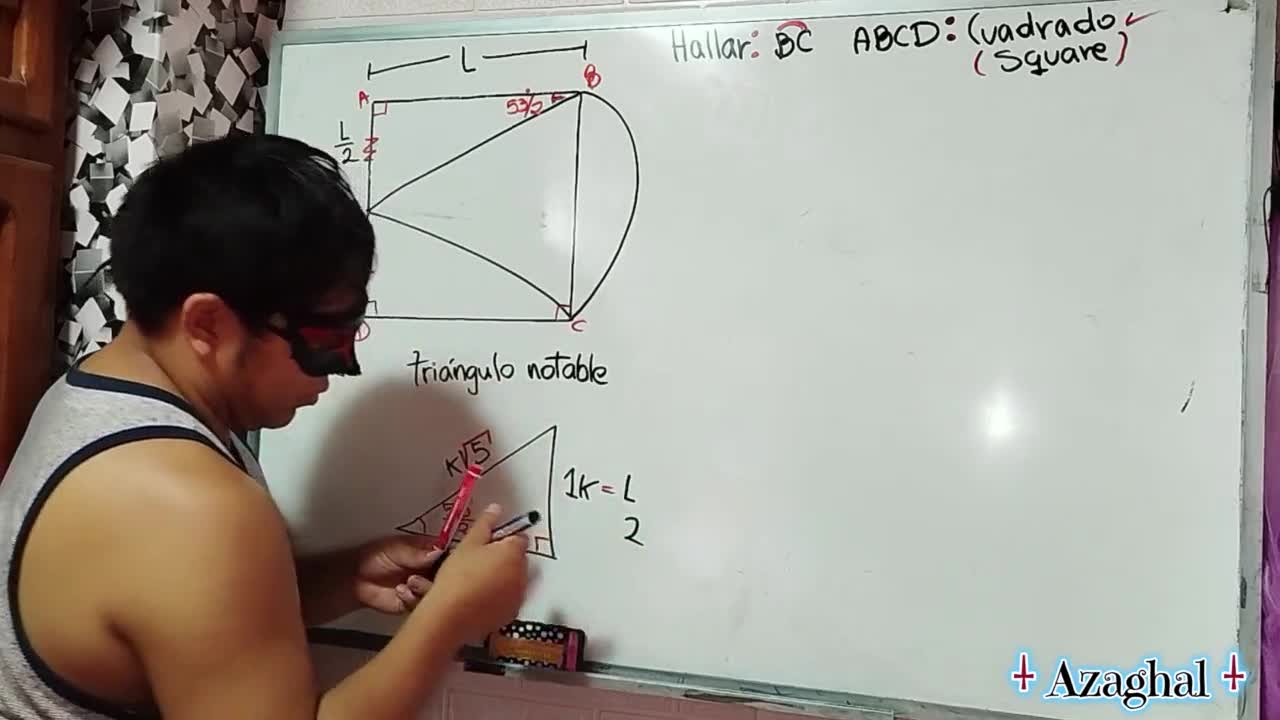 Hallar: BC ABCD: Cuadrado
(Square)
L
A
B
53/2
L
2
D
C
triángulo notable
K√5
1K = L
2
Azaghal